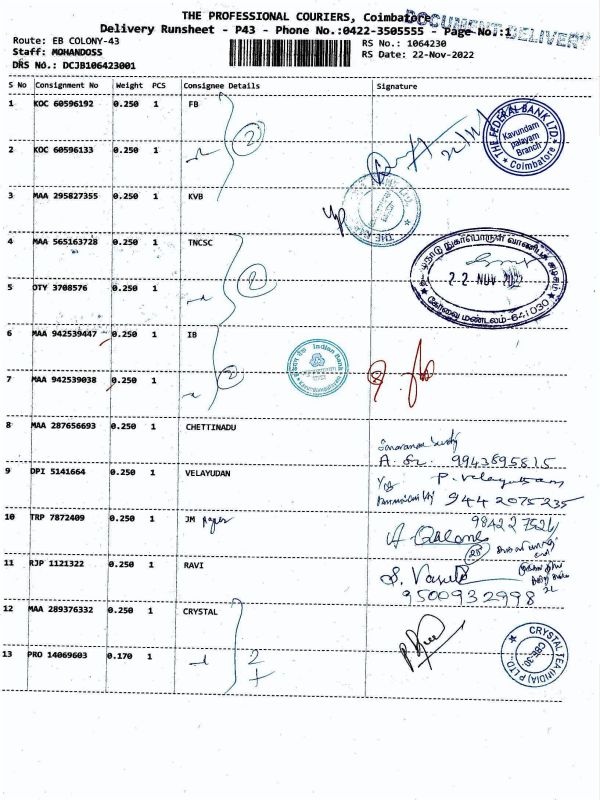 THE PROFESSIONAL COURIERS, Coimbatore
DOCUMENT DELIVERY
Delivery Runsheet - P43 - Phone No.:0422-3505555 - Page No.:1
Route: EB COLONY-43
RS No.: 1064230
Staff: MOHANDOSS
RS Date: 22-Nov-2022
DRS NO.: DCJB106423001
S No Consignment No Weight PCS Consignee Details Signature
1 KOC 60596192 0.250 1 FB
2
22/11
THE FEDERAL BANK LTD.
Kavundam
palayam
Branch
Coimbatore
2 KOC 60596133 0.250 1
3 MAA 295827355 0.250 1 KVB
4 MAA 565163728 0.250 1 TNCSC
2
22 NOV 2022
கோவை மண்டலம்-641030
5 OTY 3708576 0.250 1
6 MAA 942539447 0.250 1 IB
2
Indian Bank
7 MAA 942539038 0.250 1
8 MAA 287656693 0.250 1 CHETTINADU
9943895815
9 DPI 5141664 0.250 1 VELAYUDAN
P. Velayutham
9442075235
10 TRP 7872409 0.250 1 JM paper
9842275261
11 RJP 1121322 0.250 1 RAVI
9500932998
12 MAA 289376332 0.250 1 CRYSTAL
CRYSTAL TEA (INDIA) P LTD.
CBE-30.
13 PRO 14069603 0.170 1
2